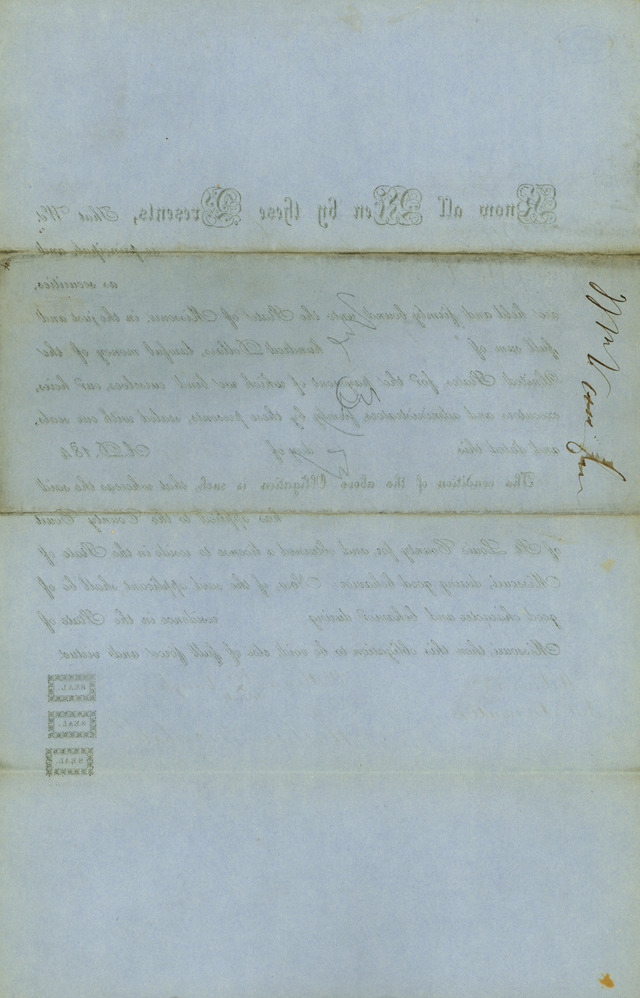 Know all Men by these Presents, That We
as principals and
as securities,
are held and firmly bound unto the State of Missouri, in the just and
full sum of hundred Dollars, lawful money of the
United States, for the payment of which we bind ourselves, our heirs,
executors and administrators, firmly by these presents, sealed with our seals,
and dated this day of A.D. 184
The condition of the above Obligation is such, that whereas the said
has applied to the County Court
of St. Louis County for and obtained a license to reside in the State of
Missouri, during good behavior: Now, if the said applicant shall be of
good character and behavior during residence in the State of
Missouri, then this obligation to be void, else of full force and virtue.
SEAL.
SEAL.
SEAL.